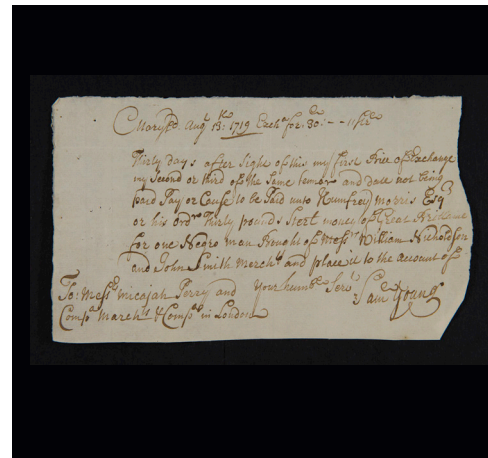 Maryld. Augt 13th: 1719 Excha for: 30: - - Sterl
Thirty days after Sight of this my first Bice of Exchange
my Second or third of the Same tennor and date not being
paid Pay or Cause to be Paid unto Humfrey Morris Esqr
or his Ordr Thirty pounds Sterl money of Great Brittaine
for one Negro man Bought of Messrs William Nicholdson
and John Smith Merchts and place it to the account of
To: Messrs Micajah Perry and your humb Servt
Compa March & Comps in London Sam Young